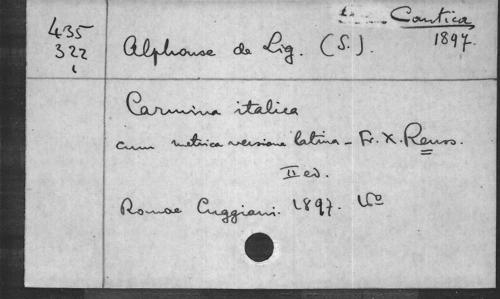 Cantica
435
322
1
Alphonse de Lig. (S.).
1897.
Carmina italica
cum metrica versione latina - Fr. X. Reuss.
II ed.
Romae Cuggiani. 1897. 16º